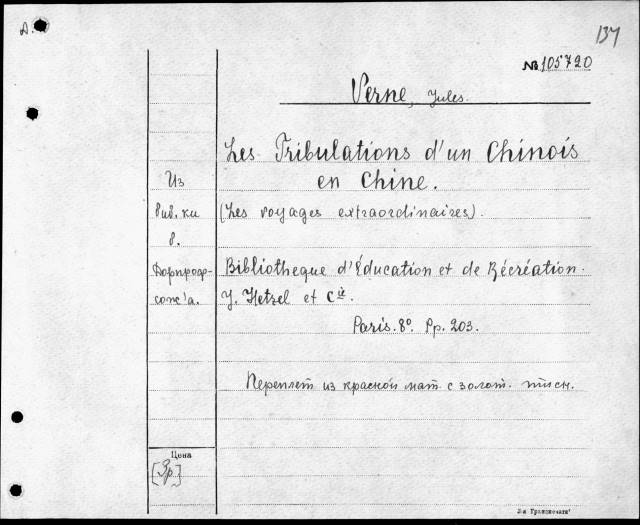 А.
137
№ 105720
Verne, Jules.
Les Tribulations d'un Chinois
en Chine.
Из
библ. ки
(Les voyages extraordinaires).
в.
Дорпроф-
сож'а.
Bibliotheque d'Éducation et de Récréation.
J. Hetzel et Cie.
Paris. 8º. Pp. 203.
Переплет из красной мат. с золот. тисн.
Цена
[3р.]